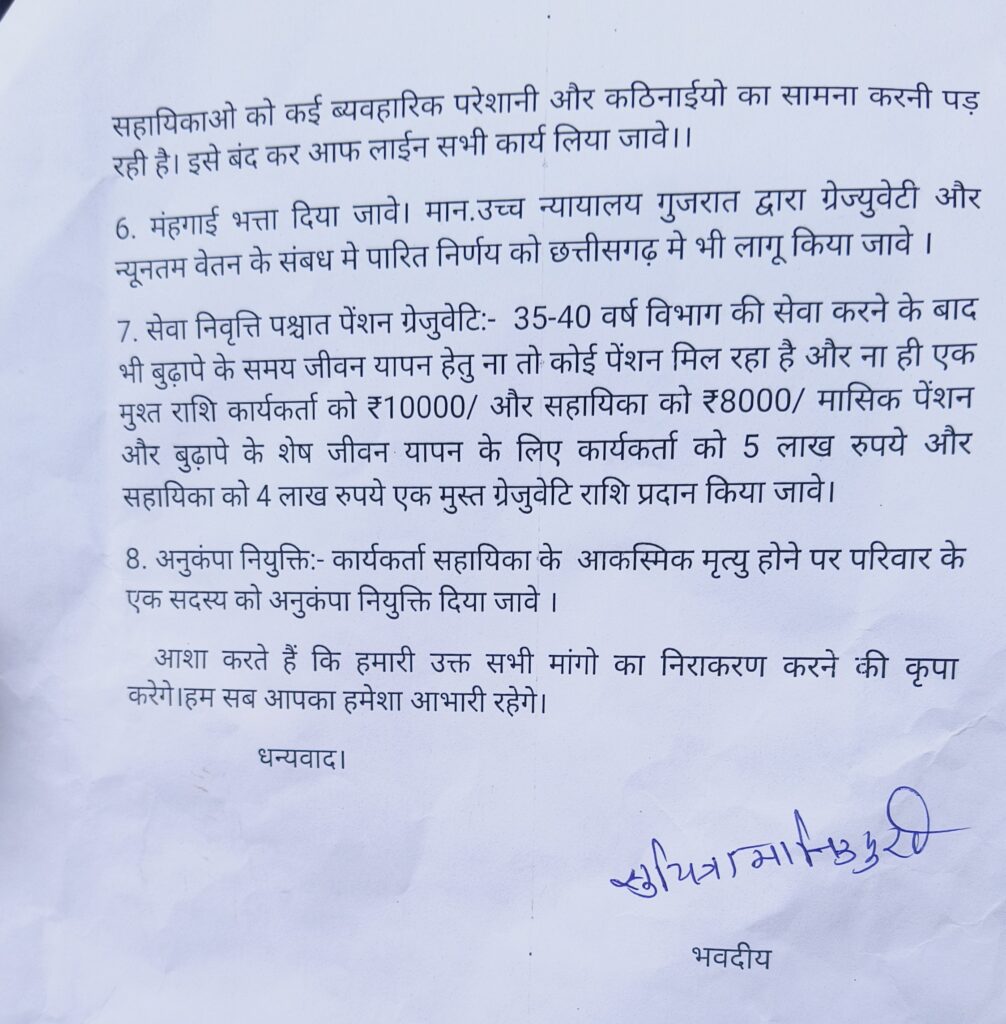 सहायिकाओ को कई ब्यवहारिक परेशानी और कठिनाईयो का सामना करनी पड़
रही है। इसे बंद कर आफ लाईन सभी कार्य लिया जावे।।
6. मंहगाई भत्ता दिया जावे। मान.उच्च न्यायालय गुजरात द्वारा ग्रेज्युवेटी और
न्यूनतम वेतन के संबध मे पारित निर्णय को छत्तीसगढ़ मे भी लागू किया जावे ।
7. सेवा निवृत्ति पश्चात पेंशन ग्रेजुवेटि:- 35-40 वर्ष विभाग की सेवा करने के बाद
भी बुढ़ापे के समय जीवन यापन हेतु ना तो कोई पेंशन मिल रहा है और ना ही एक
मुश्त राशि कार्यकर्ता को ₹10000/ और सहायिका को ₹8000/ मासिक पेंशन
और बुढ़ापे के शेष जीवन यापन के लिए कार्यकर्ता को 5 लाख रुपये और
सहायिका को 4 लाख रुपये एक मुस्त ग्रेजुवेटि राशि प्रदान किया जावे।
8. अनुकंपा नियुक्ति:- कार्यकर्ता सहायिका के आकस्मिक मृत्यु होने पर परिवार के
एक सदस्य को अनुकंपा नियुक्ति दिया जावे ।
आशा करते हैं कि हमारी उक्त सभी मांगो का निराकरण करने की कृपा
करेगे।हम सब आपका हमेशा आभारी रहेगे।
धन्यवाद।
भवदीय